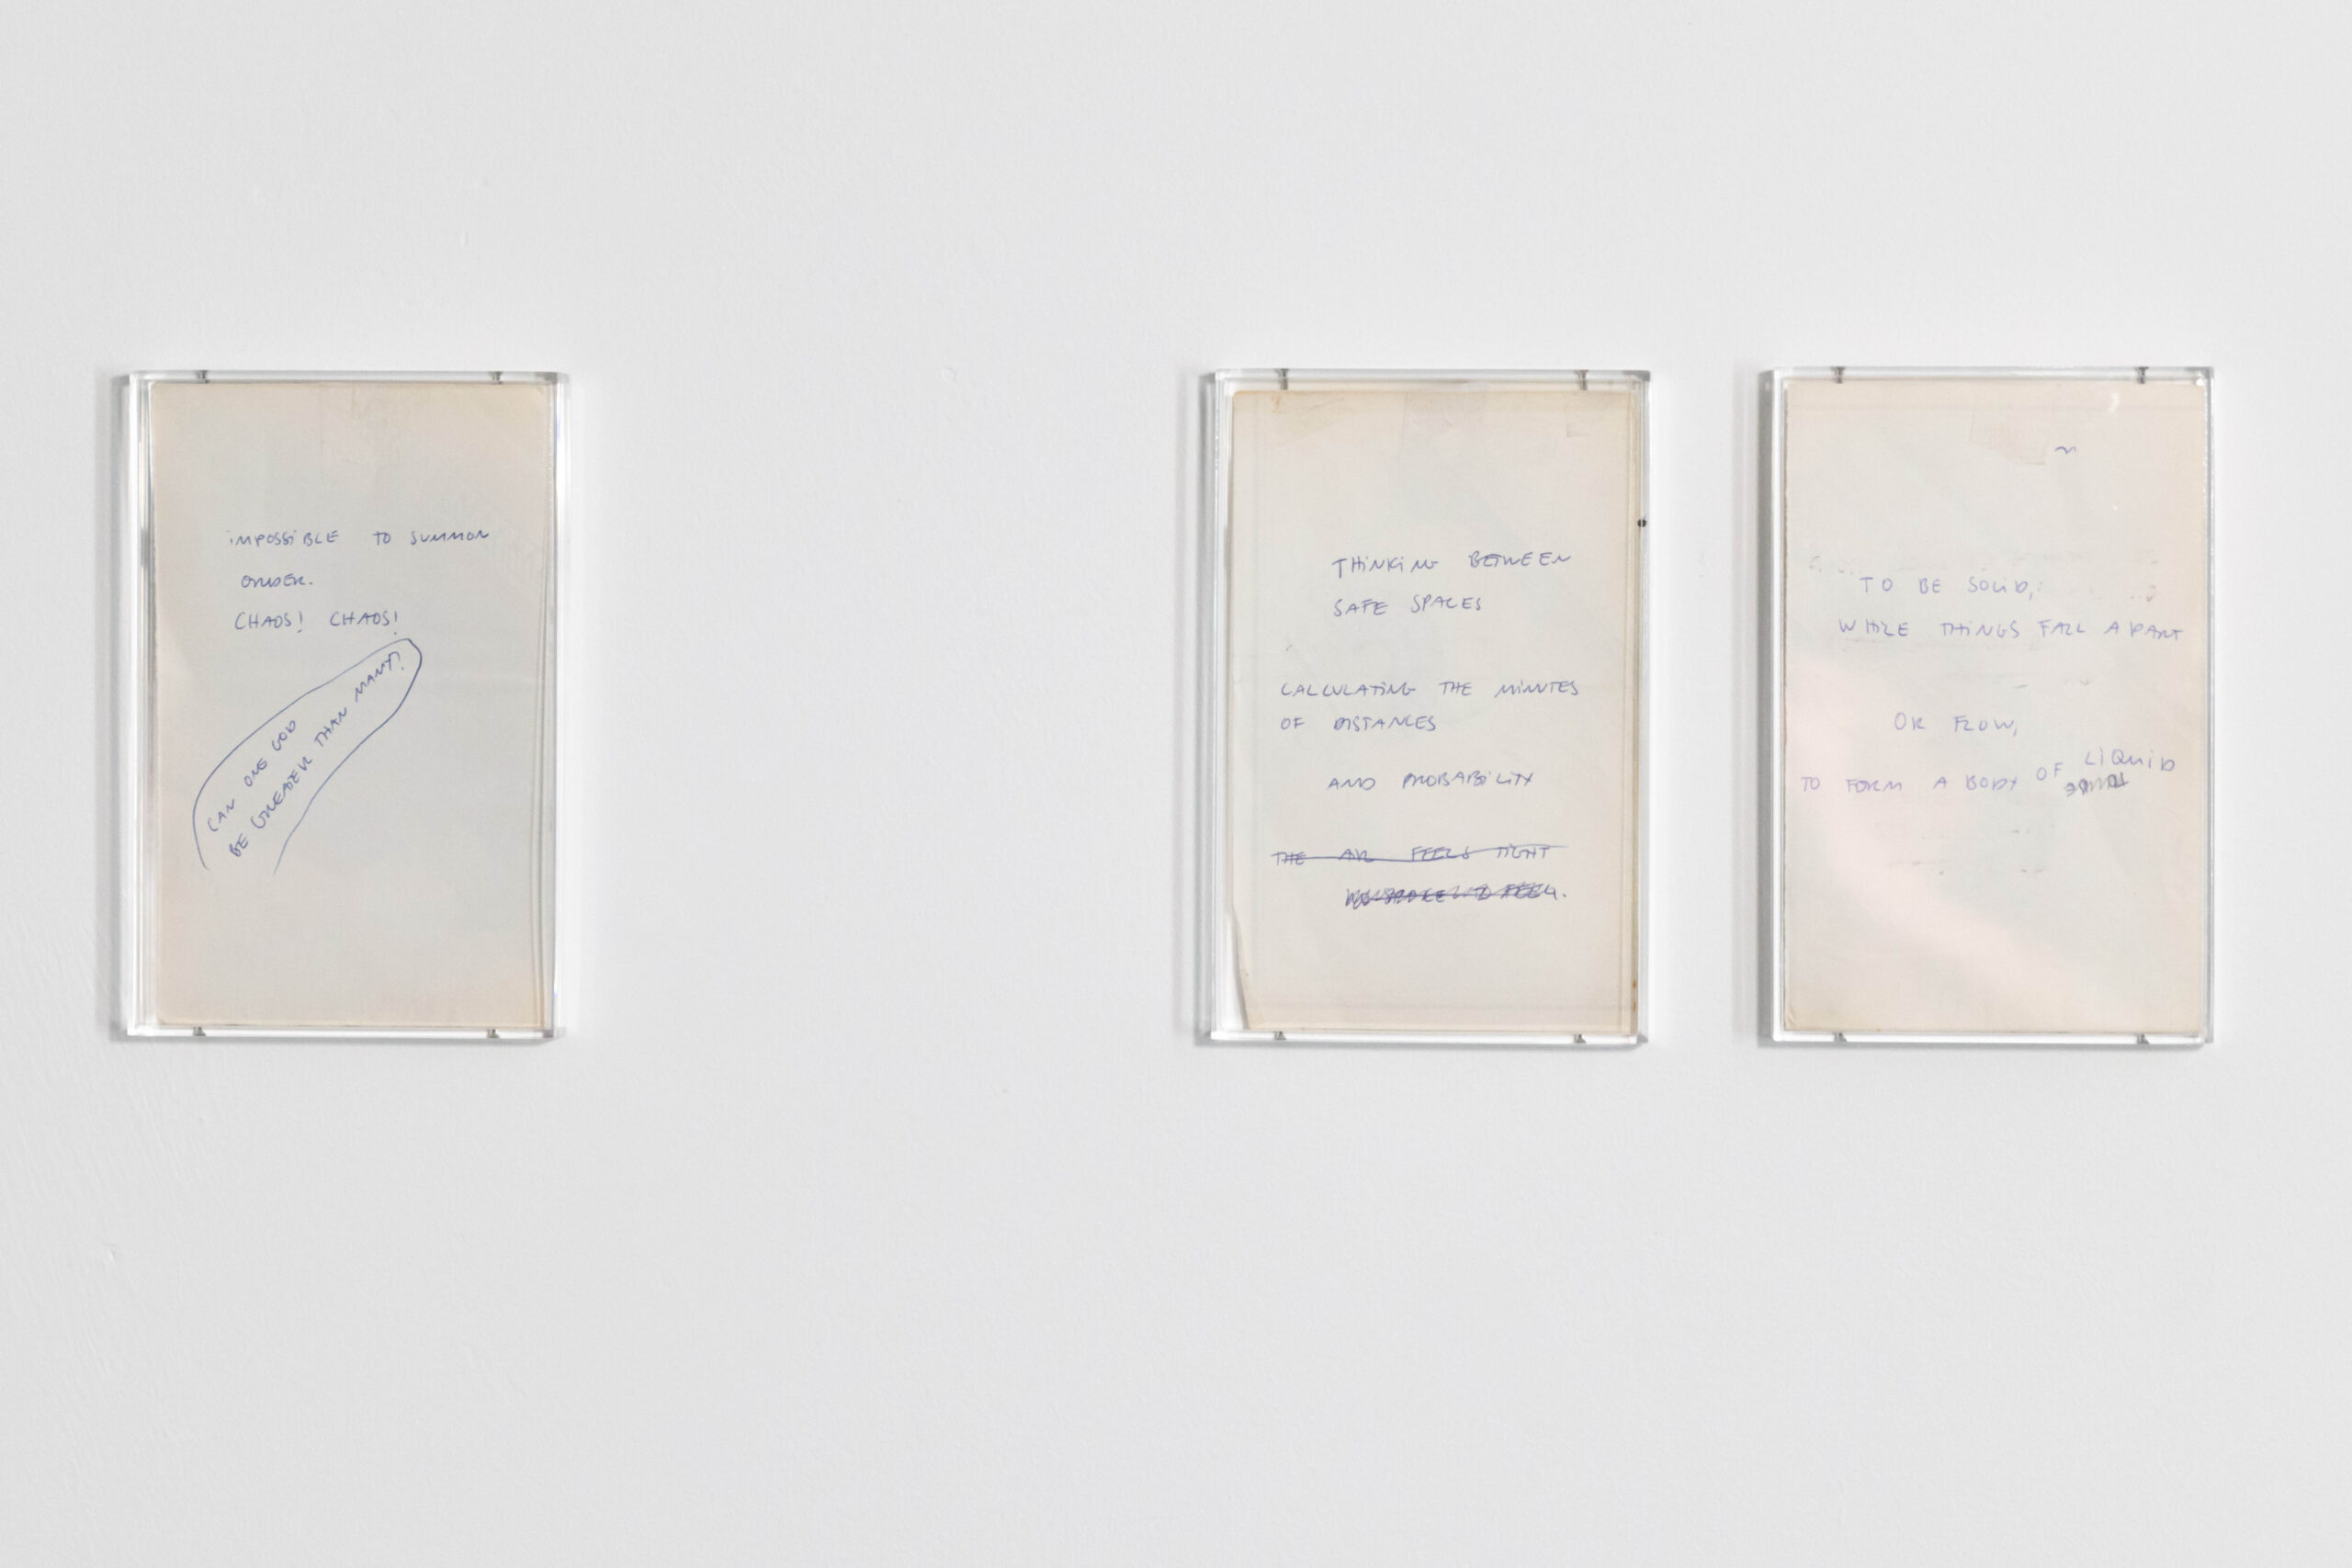 iMPOSSiBLE TO SUMMON
ORDER.
CHAOS! CHAOS!
CAN ONE GOD
BE GREATER THAN MANY?
THiNKiNG BETWEEN
SAFE SPACES
CALCULATiNG THE MiNUTES
OF DISTANCES
AND PROBABiLiTY
THE AIR FEELS TIGHT
TO BE SOLiD,
WHILE THiNGS FALL APART
OR FLOW,
TO FORM A BODY OF LiQUiD